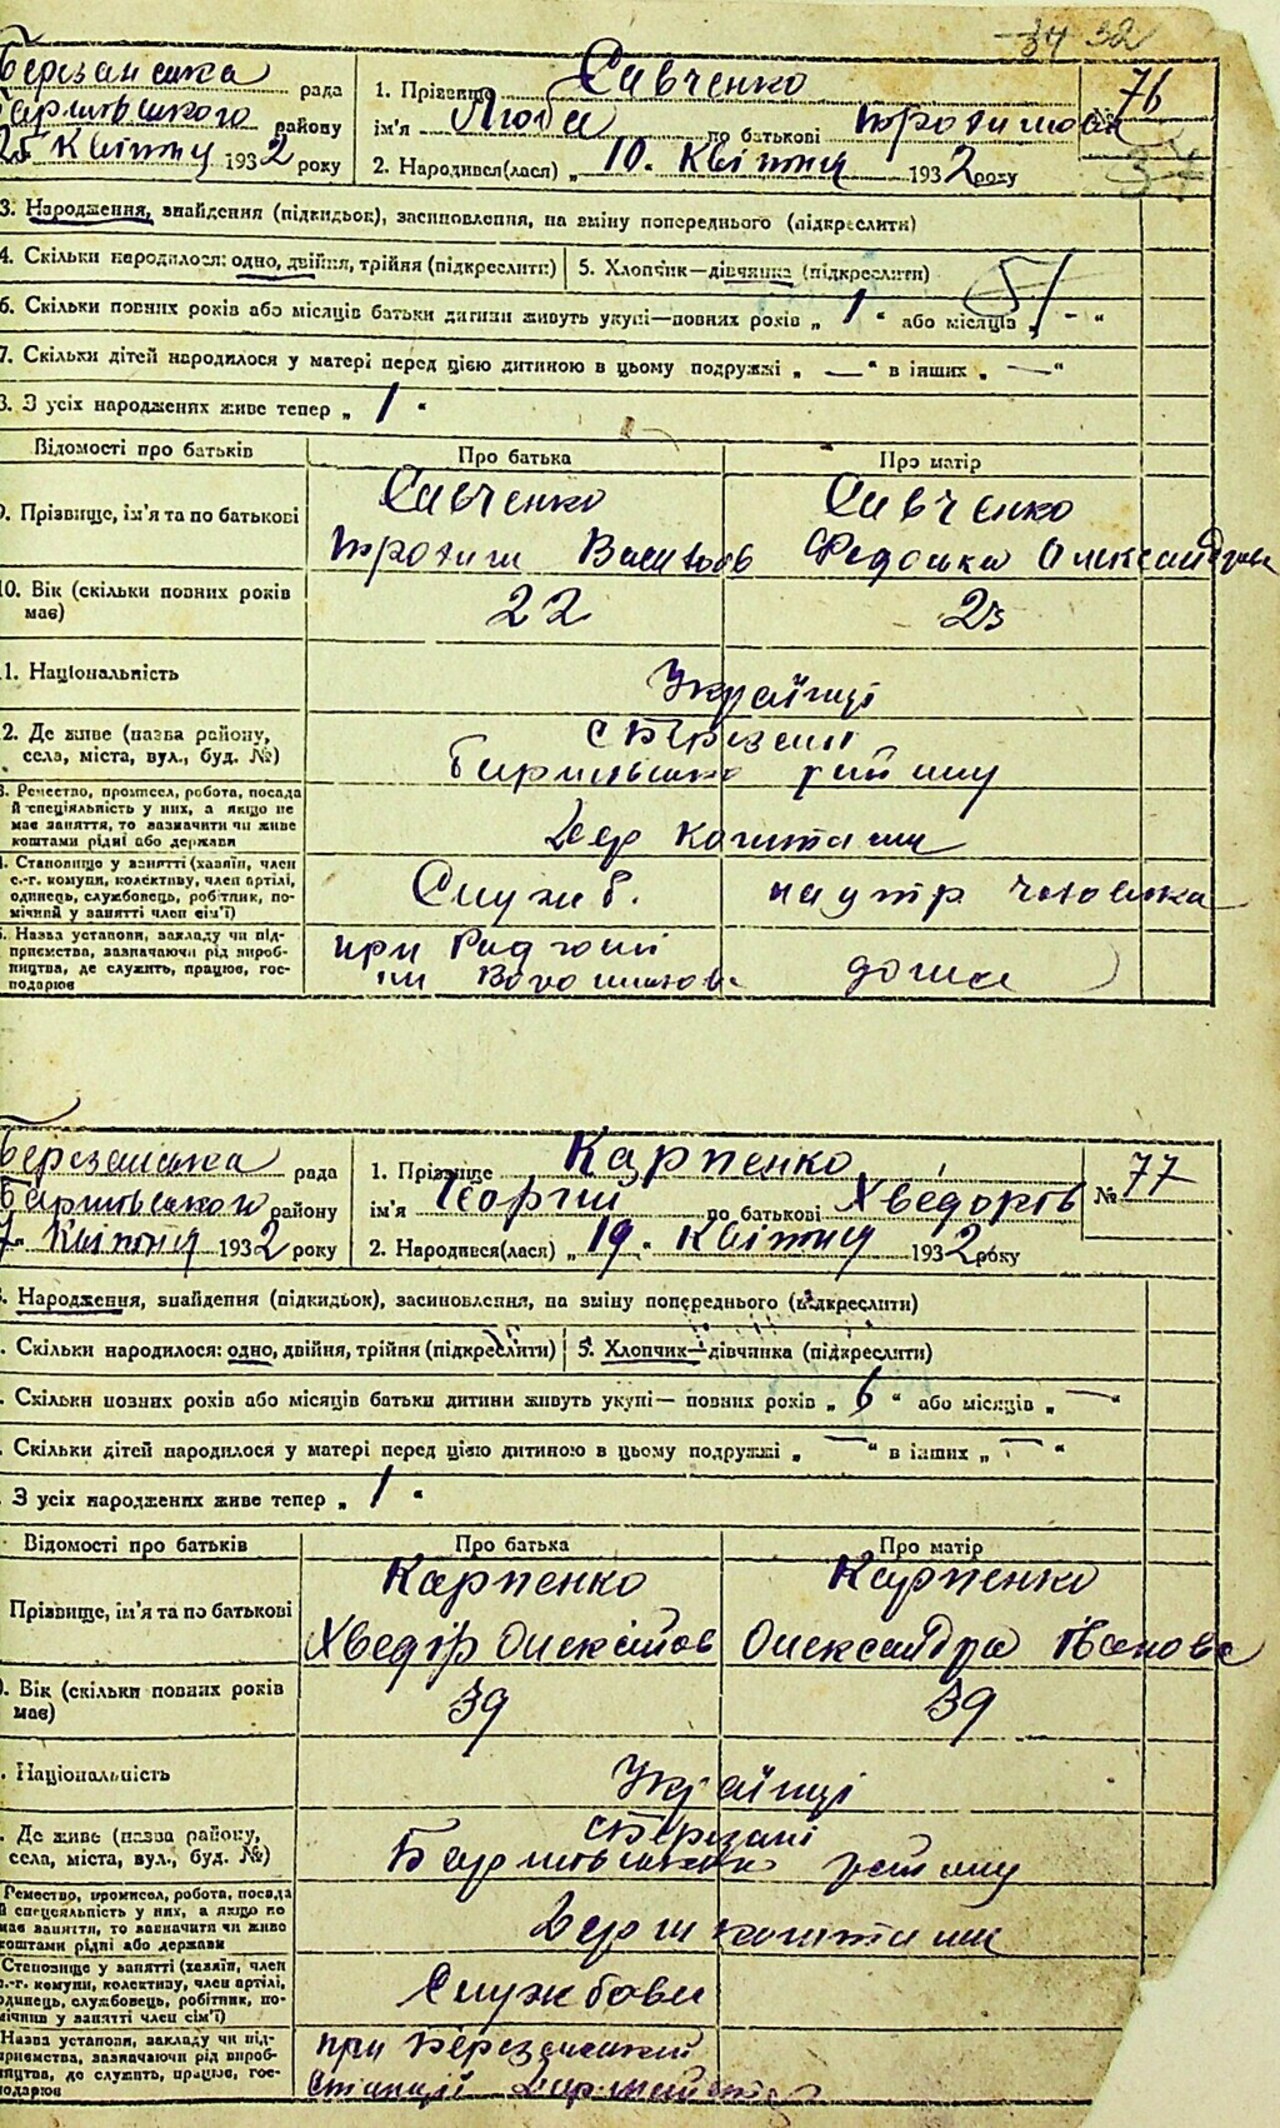 34 32
Березанська рада
Баришівського району
25 Квітня 1932 року
1. Прізвище Савченко
ім'я Люба по батькові Трохимовн
№ 76
2. Народився(лася) „ 10. Квітня 1932 року
3. Народження, знайдення (підкидьок), засиновлення, на зміну попереднього (підкреслити)
4. Скільки народилося: одно, двійня, трійня (підкреслити) 5. Хлопчик—дівчинка (підкреслити)
6. Скільки повних років або місяців батьки дитини живуть укупі—повних років „ 1 “ або місяців „ - “
7. Скільки дітей народилося у матері перед цією дитиною в цьому подружжі „ — “ в інших „ — “
8. З усіх народжених живе тепер „ 1 “
Відомості про батьків Про батька Про матір
9. Прізвище, ім'я та по батькові
Савченко Савченко
Трохим Васильов Федоська Олександровн
10. Вік (скільки повних років має) 22 23
11. Національність Українці
12. Де живе (назва району, села, міста, вул., буд. №)
с Березані
Баришівсько району
13. Ремество, промисел, робота, посада й спеціяльність у них, а якщо не має заняття, то зазначити чи живе коштами рідні або держави
Дер коштами
14. Становище у занятті (хазяїн, член с.-г. комуни, колективу, член артілі, одинець, службовець, робітник, помічний у занятті член сім'ї)
Служб. на утр чоловіка
15. Назва установи, закладу чи підприємства, зазначаючи рід виробництва, де служить, працює, господарює
при Радгоспі
ім Ворошилова дома
Березанська рада
Баришівського району
Квітня 1932 року
1. Прізвище Карпенко
ім'я Георгий по батькові Хведоров
№ 77
2. Народився(лася) „ 19. Квітня 1932 року
Народження, знайдення (підкидьок), засиновлення, на зміну попереднього (підкреслити)
Скільки народилося: одно, двійня, трійня (підкреслити) 5. Хлопчик—дівчинка (підкреслити)
Скільки повних років або місяців батьки дитини живуть укупі— повних років „ 6 “ або місяців „ — “
Скільки дітей народилося у матері перед цією дитиною в цьому подружжі „ — “ в інших „ — “
З усіх народжених живе тепер „ 1 “
Відомості про батьків Про батька Про матір
Прізвище, ім'я та по батькові
Карпенко Карпенко
Хведір Олексійов Олександра Іванова
Вік (скільки повних років має) 39 39
Національність Українці
Де живе (назва району, села, міста, вул., буд. №)
с Березані
Баришівського району
Ремество, промисел, робота, посада й спеціяльність у них, а якщо не має заняття, то зазначити чи живе коштами рідні або держави
Держ коштами
Становище у занятті (хазяїн, член с.-г. комуни, колективу, член артілі, одинець, службовець, робітник, помічний у занятті член сім'ї)
Службовец
Назва установи, закладу чи підприємства, зазначаючи рід виробництва, де служить, працює, господарює
при Березанський
Станції